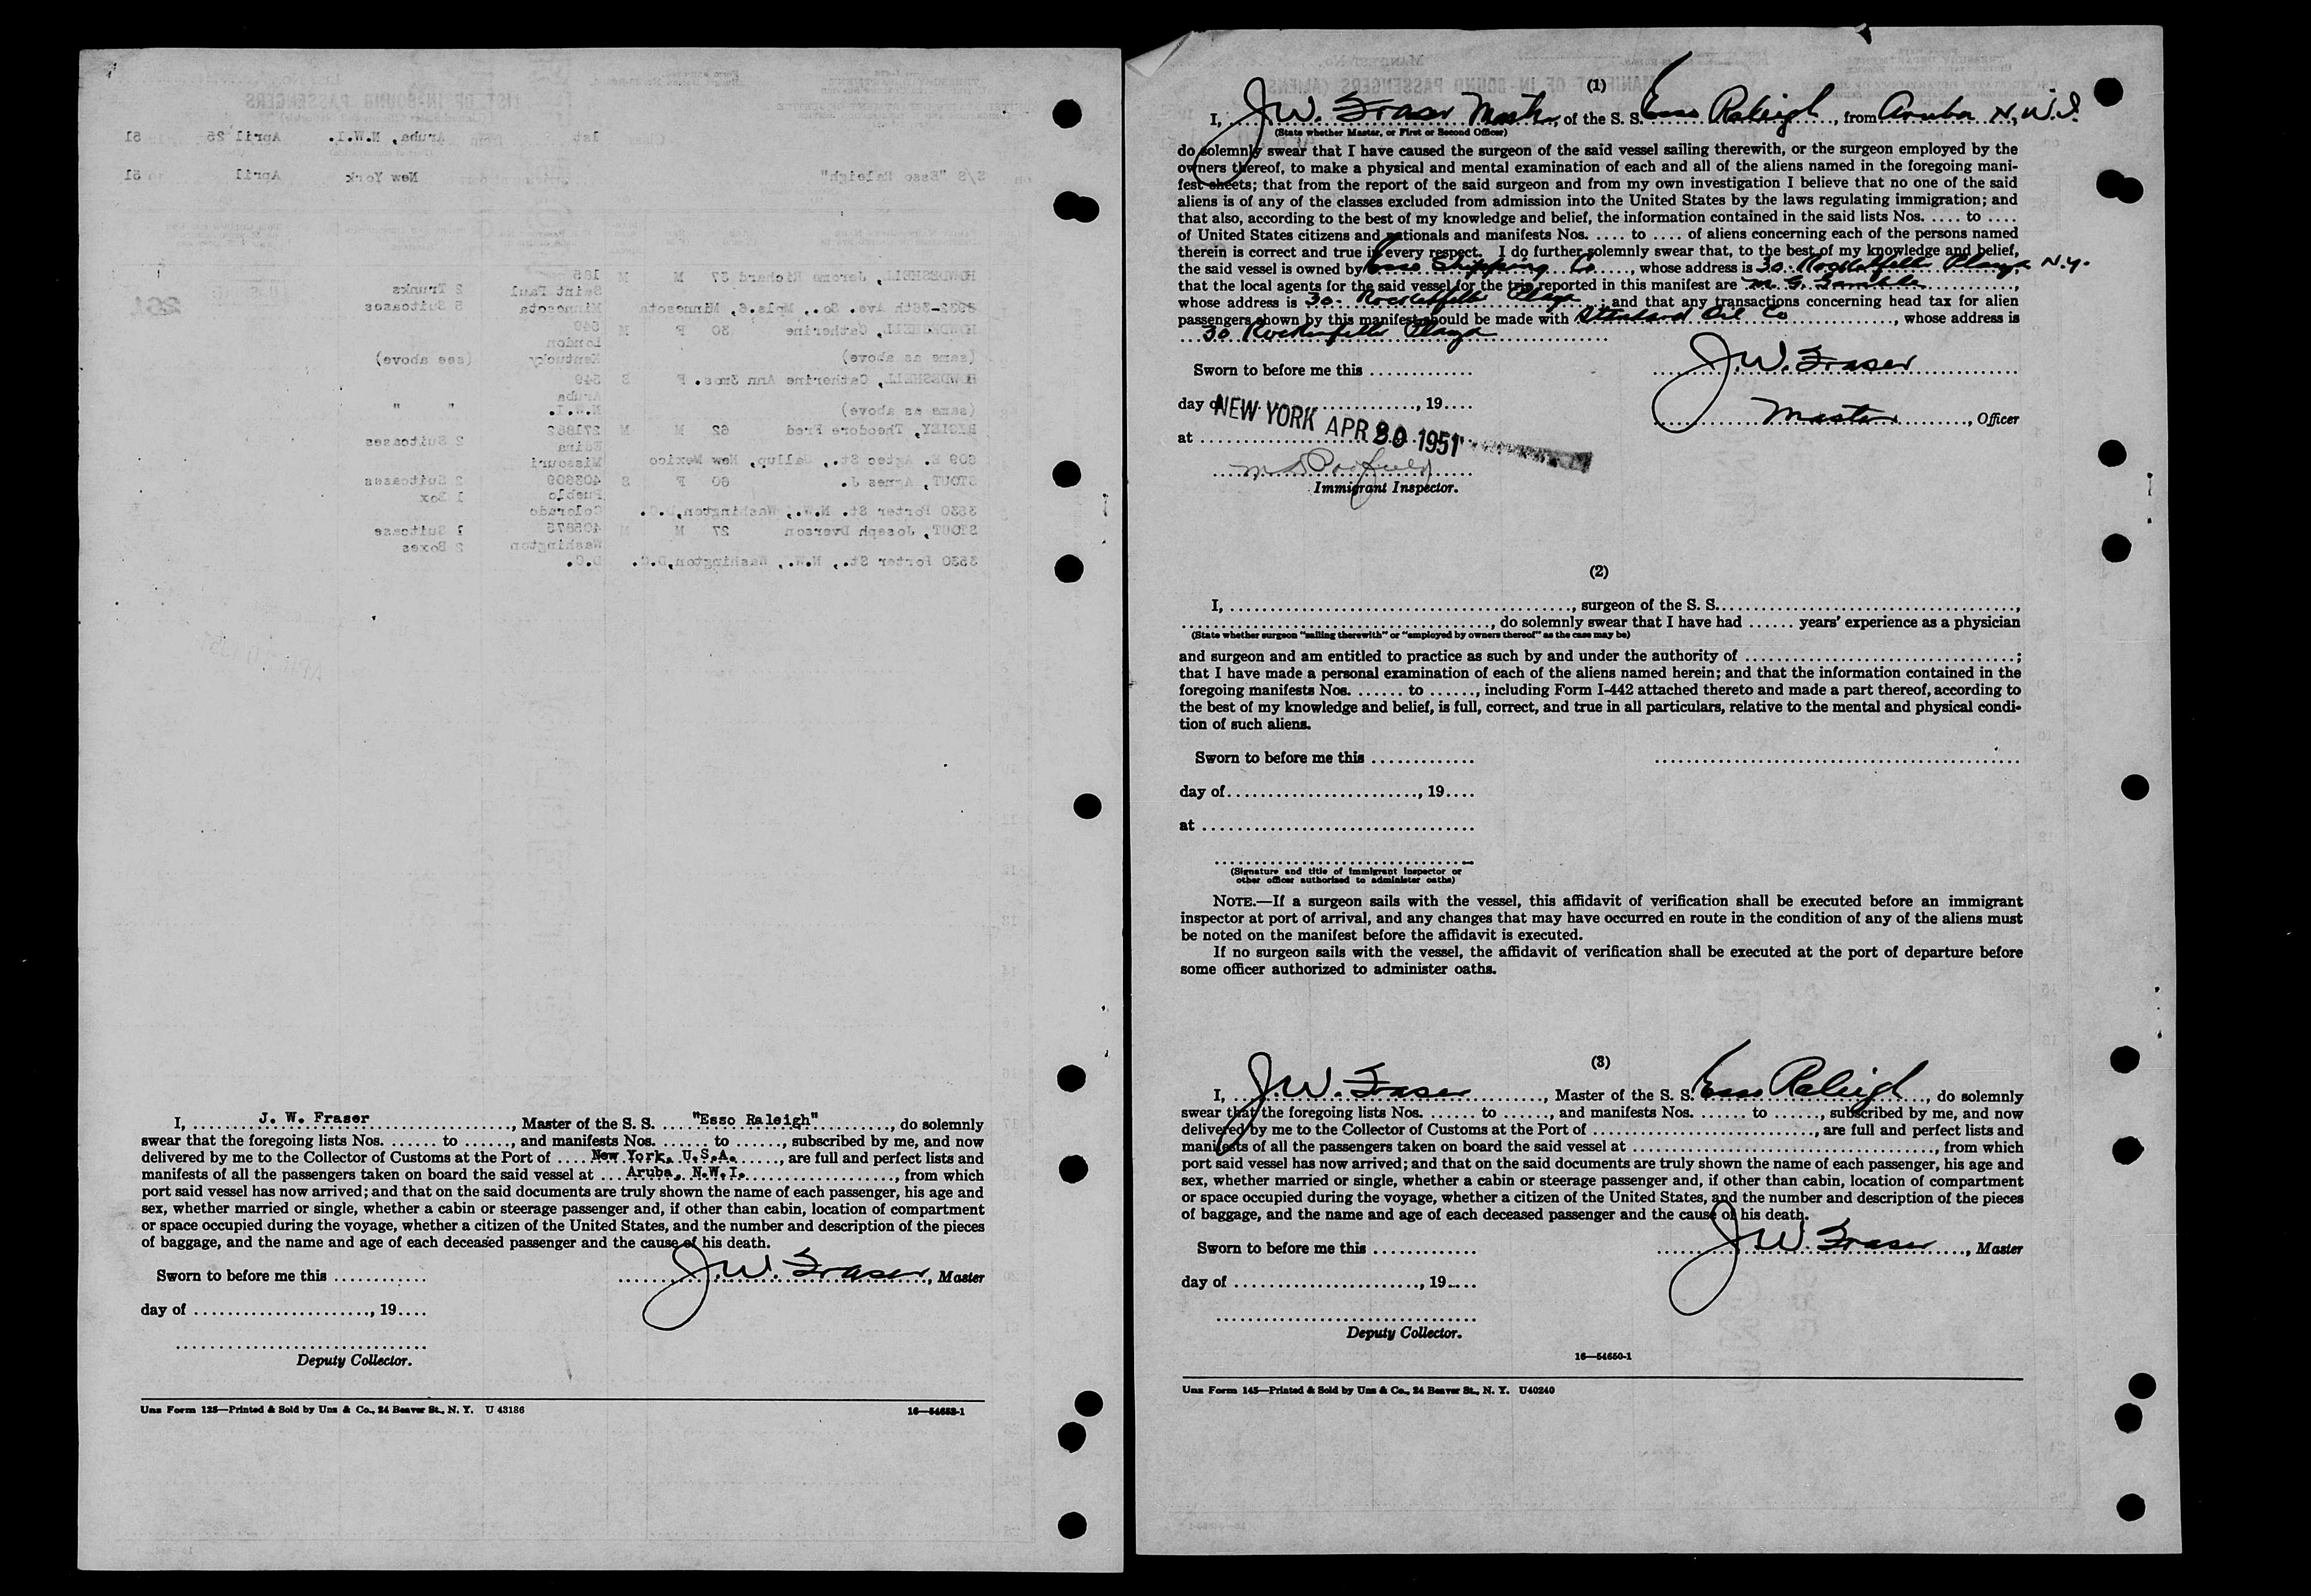 I, J. W. Fraser, Master of the S. S. "Esso Raleigh", do solemnly
swear that the foregoing lists Nos. ...... to ......, and manifests Nos. ...... to ......, subscribed by me, and now
delivered by me to the Collector of Customs at the Port of .... New York, U.S.A. ....., are full and perfect lists and
manifests of all the passengers taken on board the said vessel at ... Aruba, N.W.I. ...................., from which
port said vessel has now arrived; and that on the said documents are truly shown the name of each passenger, his age and
sex, whether married or single, whether a cabin or steerage passenger and, if other than cabin, location of compartment
or space occupied during the voyage, whether a citizen of the United States, and the number and description of the pieces
of baggage, and the name and age of each deceased passenger and the cause of his death.
Sworn to before me this ............ J.W. Fraser, Master
day of ....................., 19....
Deputy Collector.
Uns Form 125—Printed & Sold by Uns & Co., 24 Beaver St., N. Y. U 43186 16—54652-1
(1)
I, J.W. Fraser Master, of the S. S. Esso Raleigh, from Aruba N.W.I.
(State whether Master, or First or Second Officer)
do solemnly swear that I have caused the surgeon of the said vessel sailing therewith, or the surgeon employed by the
owners thereof, to make a physical and mental examination of each and all of the aliens named in the foregoing mani-
fest sheets; that from the report of the said surgeon and from my own investigation I believe that no one of the said
aliens is of any of the classes excluded from admission into the United States by the laws regulating immigration; and
that also, according to the best of my knowledge and belief, the information contained in the said lists Nos. .... to ....
of United States citizens and nationals and manifests Nos. .... to .... of aliens concerning each of the persons named
therein is correct and true in every respect. I do further solemnly swear that, to the best of my knowledge and belief,
the said vessel is owned by Esso Shipping Co ....., whose address is 30 Rockefeller Plaza N.Y.
that the local agents for the said vessel for the trip reported in this manifest are M. G. Gamble ..........,
whose address is 30 Rockefeller Plaza ...; and that any transactions concerning head tax for alien
passengers shown by this manifest should be made with Standard Oil Co ................, whose address is
30 Rockefeller Plaza
Sworn to before me this ............. J.W. Fraser
day of ......................, 19....
Master, Officer
NEW YORK APR 30 1951
at
Immigrant Inspector.
(2)
I, ........................................, surgeon of the S. S. ....................................,
....................................., do solemnly swear that I have had ...... years' experience as a physician
(State whether surgeon "sailing therewith" or "employed by owners thereof" as the case may be)
and surgeon and am entitled to practice as such by and under the authority of ................................;
that I have made a personal examination of each of the aliens named herein; and that the information contained in the
foregoing manifests Nos. ...... to ......, including Form I-442 attached thereto and made a part thereof, according to
the best of my knowledge and belief, is full, correct, and true in all particulars, relative to the mental and physical condi-
tion of such aliens.
Sworn to before me this .............
day of ......................, 19....
at ................................
(Signature and title of Immigrant Inspector or
other officer authorized to administer oaths)
NOTE.—If a surgeon sails with the vessel, this affidavit of verification shall be executed before an immigrant
inspector at port of arrival, and any changes that may have occurred en route in the condition of any of the aliens must
be noted on the manifest before the affidavit is executed.
If no surgeon sails with the vessel, the affidavit of verification shall be executed at the port of departure before
some officer authorized to administer oaths.
(3)
I, J.W. Fraser, Master of the S. S. Esso Raleigh, do solemnly
swear that the foregoing lists Nos. ...... to ......, and manifests Nos. ...... to ......, subscribed by me, and now
delivered by me to the Collector of Customs at the Port of ............................, are full and perfect lists and
manifests of all the passengers taken on board the said vessel at ...................................., from which
port said vessel has now arrived; and that on the said documents are truly shown the name of each passenger, his age and
sex, whether married or single, whether a cabin or steerage passenger and, if other than cabin, location of compartment
or space occupied during the voyage, whether a citizen of the United States, and the number and description of the pieces
of baggage, and the name and age of each deceased passenger and the cause of his death.
Sworn to before me this ............. J.W. Fraser, Master
day of ......................, 19....
Deputy Collector.
16—54650-1
Uns Form 145—Printed & Sold by Uns & Co., 24 Beaver St., N. Y. U40240